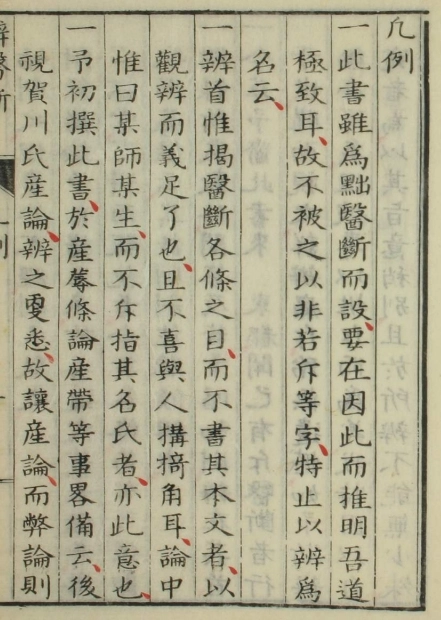 凡例
一此書雖爲黜醫斷而設、要在因此而推明吾道
極致耳、故不被之以非若斥等字、特止以辨爲
名云、
一辨首惟揭醫斷各條之目、而不書其本文者、以
觀辨而義足了也、且不喜與人搆掎角耳、論中
惟曰某師某生、而不斥指其名氏者、亦此意也、
一予初撰此書、於産蓐條論産帶等事畧備云、後
視賀川氏産論、辨之更悉、故讓産論、而弊論則